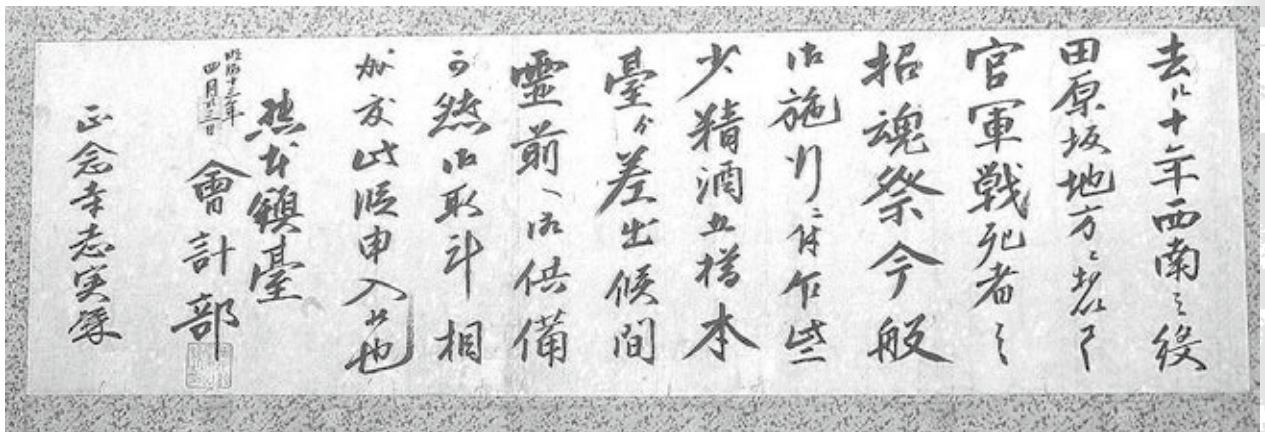 去ル十年西南之役
田原坂地方ニ於テ
官軍戦死者之
招魂祭今般
御施行ニ付乍些
少精酒五樽本
臺ゟ差出候間
靈前ヘ御供備
可然御取斗相
成度此段申入候也
明治十三年
四月廿三日
熊本鎮臺
會計部
正念寺志実殿